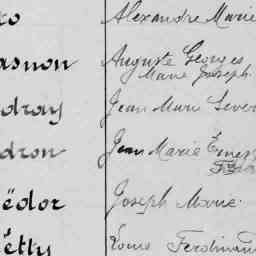 to Alexandre Marie
asnon Auguste Georges
Marie Joseph
dray Jean Marie Sever
dron Jean Marie Ernest
ëdor Joseph Marie
étty Louis Ferdinand